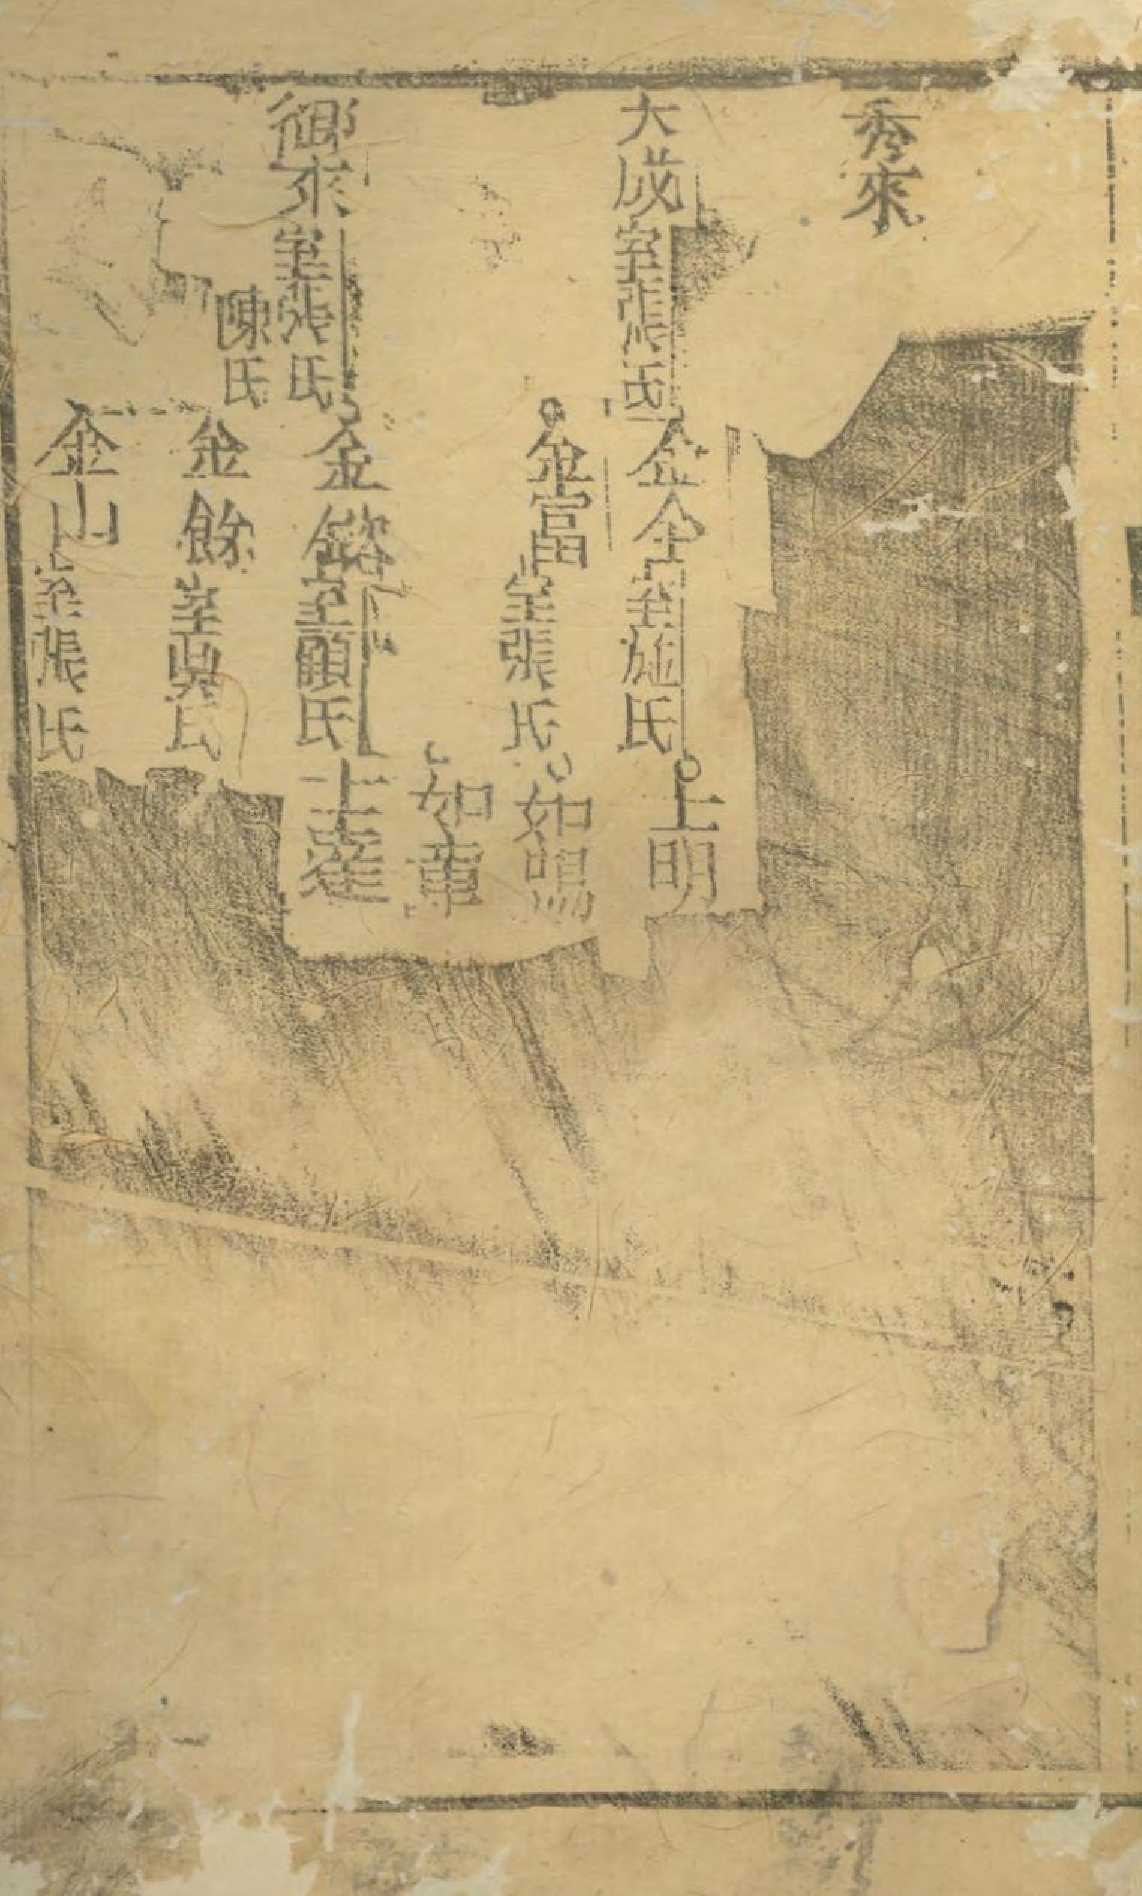 秀來
大成室張氏
金全室施氏
上明
金富室張氏
如鳴
如章
御來室張氏
陳氏
金鎔室顧氏
士達
金餘室吳氏
金山室張氏